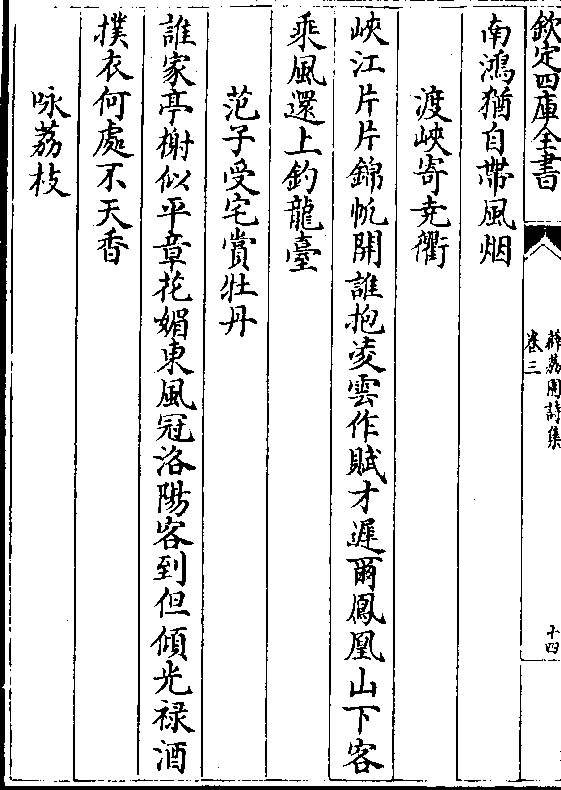 欽定四庫全書
薜荔園詩集
卷三
十四
南鴻猶自帶風烟
渡峽寄堯衢
峽江片片錦帆開誰抱凌雲作賦才遲爾鳳凰山下客
乘風還上釣龍臺
范子受宅賞牡丹
誰家亭榭似平章花媚東風冠洛陽客到但傾光禄酒
撲衣何處不天香
咏荔枝